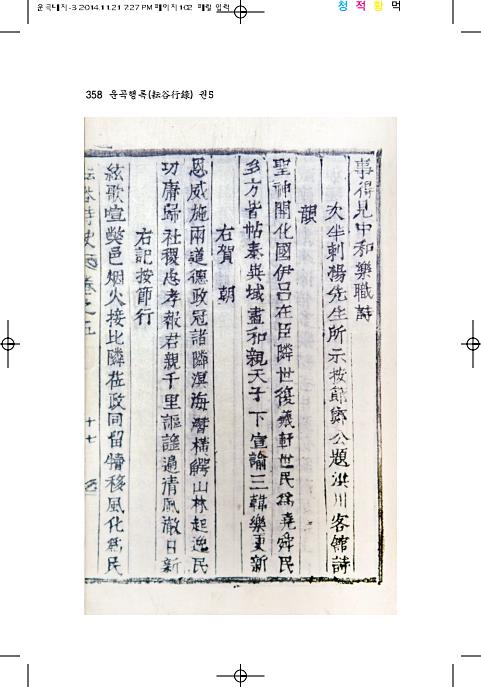 운곡대지-3 2014.11.21 7:27 PM 페이지102 매킬 입력
청 적 황 먹
358 운곡행록(耘谷行錄) 권5
事得見中和樂職詩
次半刺楊先生所示按節鄭公題洪川客館詩
韻
聖神開化國伊呂在臣隣世復羲軒世民爲堯舜民
多方皆帖泰異域盡和親天子下宣諭三韓樂更新
右賀朝
恩威施兩道德政冠諸隣溟海潛橫鰐山林起逸民
功庸歸社稷忠孝報君親千里謳謠遍淸風徹日新
右記按節行
絃歌喧獘邑烟火接比隣莅政同留犢移風化爲民
耘谷詩史 卷之五
十七